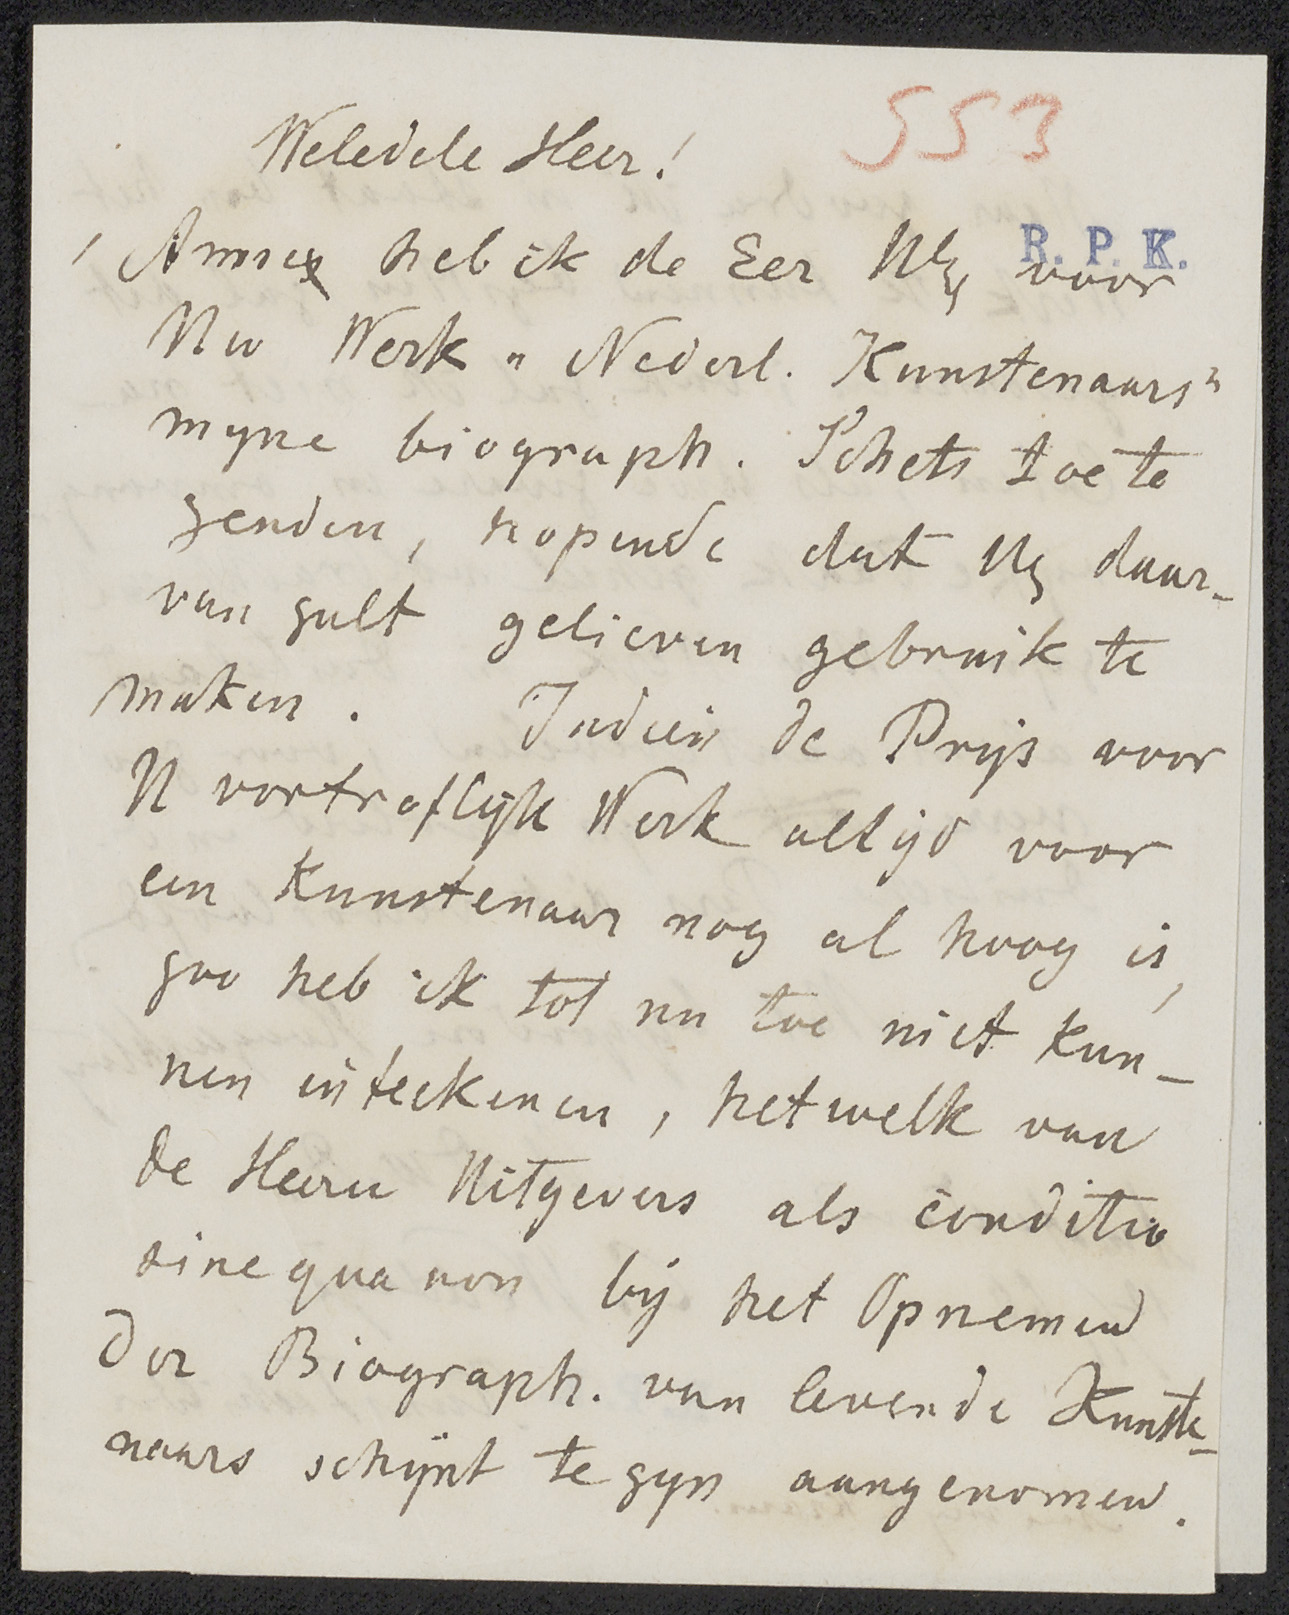 553
Weledele Heer!
R. P. K.
Annex heb ik de Eer UEg voor
Uw Werk "Nederl. Kunstenaars"
myne biograph. Schets toe te
zenden, hopende dat UEg daar-
van zult gelieven gebruik te
maken. Indien de Prijs voor
U vortreflijk Werk altijd voor
een Kunstenaar nog al hoog is,
zoo heb ik tot nu toe niet kun-
nen inteekenen, hetwelk van
de Heeren Uitgevers als conditio
sine qua non bij het Opnemen
der Biograph. van levende Kunste-
naars schijnt te zyn aangenomen.